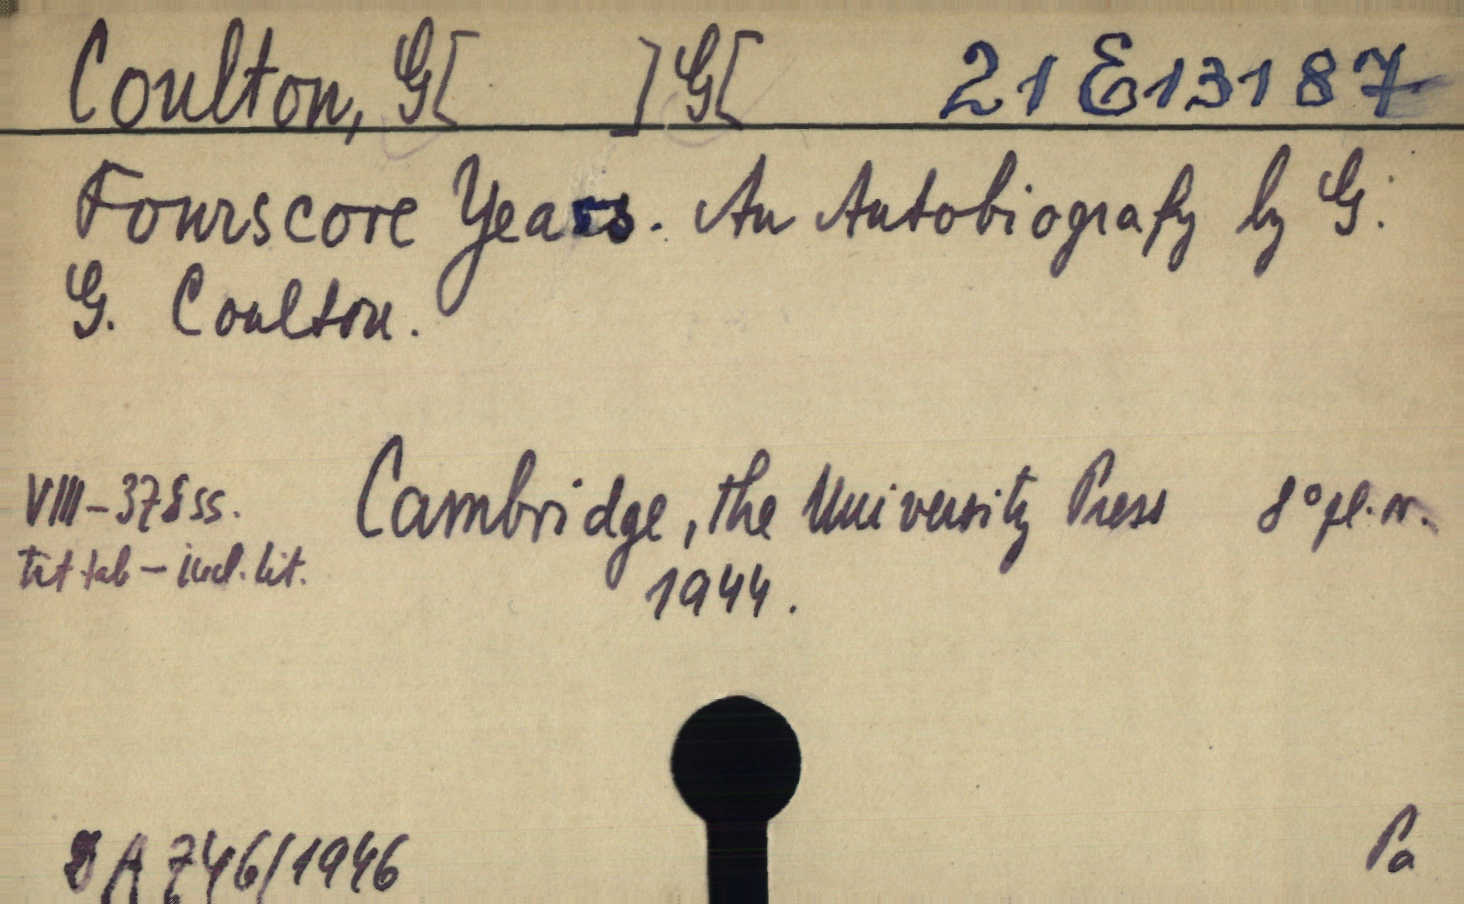 Coulton, G[ ]G[ 21 E 13187
Fourscore Years. An Autobiografy by G.
G. Coulton.
VIII-378 ss. Cambridge, the University Press 8° pl. v.
tit tab - incl. lit.
1944.
A 746/1946 Pa